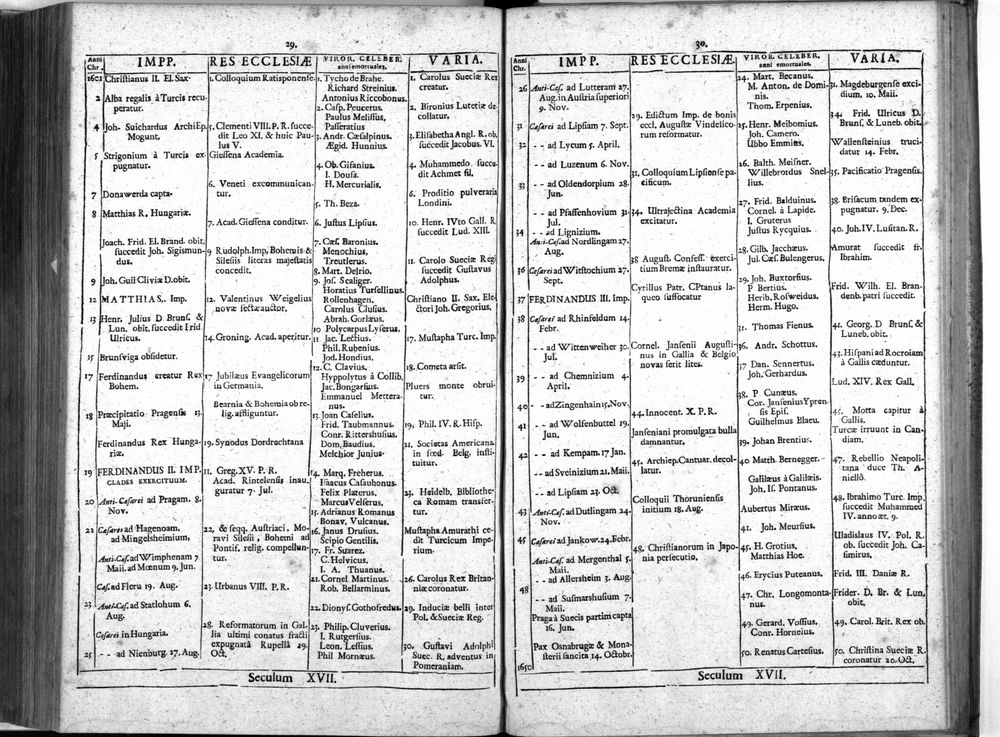 29.
Anni Chr.
IMPP.
1601 Christianus II. El. Sax.
2 Alba regalis à Turcis recu-
peratur.
4 Joh. Suichardus ArchiEp.
Mogunt.
5 Strigonium à Turcis ex-
pugnatur.
7 Donawerda capta.
8 Matthias R. Hungariæ.
Joach. Frid. El. Brand. obit.
succedit Joh. Sigismun-
dus.
9 Joh. Guil Cliviæ D. obit.
12 MATTHIAS. Imp.
13 Henr. Julius D Bruns. &
Lun. obit. succedit Frid.
Ulricus.
15 Brunsviga obsidetur.
17 Ferdinandus creatur Rex
Bohem.
18 Præcipitatio Pragensis 13.
Maji.
Ferdinandus Rex Hunga-
riæ.
19 FERDINANDUS II. IMP.
CLADES EXERCITUUM.
20 Anti-Cæsarei ad Pragam. 8.
Nov.
22 Cæsarei ad Hagenoam.
ad Mingelsheimium,
Anti-Cæs. ad Wimphenam 7
Maii. ad Mœnum 9. Jun.
Cæs. ad Fleru 19. Aug.
23 Anti-Cæs. ad Statlohum 6.
Aug.
Cæsarei in Hungaria.
25 - - ad Nienburg. 27. Aug.
RES ECCLESIÆ
1. Colloquium Ratisponense.
5. Clementi VIII. P. R. succe-
dit Leo XI. & huic Pau-
lus V.
Giessena Academia.
6. Veneti excommunican-
tur.
7. Acad. Giessena conditur.
9 Rudolph. Imp. Bohemis &
Silesiis literas majestatis
concedit.
12. Valentinus Weigelius
novæ sectæ auctor.
14. Groning. Acad. aperitur.
17 Jubilæus Evangelicorum
in Germania.
Bearnia & Bohemia ob re-
lig. affliguntur.
19. Synodus Dordrechtana
21. Greg. XV. P. R.
Acad. Rintelensis inau-
guratur 7. Jul.
22. & seqq. Austriaci, Mo-
ravi Silesii, Bohemi ad
Pontif. relig. compellun-
tur.
23. Urbanus VIII. P. R.
28. Reformatorum in Gal-
lia ultimi conatus fracti
expugnatâ Rupellâ 29.
Oct.
VIROR. CELEBER.
anni emortuales.
1. Tycho de Brahe.
Richard Streinius,
Antonius Riccobonus.
2. Casp. Peucerus.
Paulus Melissus,
Passeratius
3. Andr. Cæsalpinus.
Ægid. Hunnius.
4. Ob. Gifanius.
I. Dousa.
H. Mercurialis.
5. Th. Beza.
6. Justus Lipsius.
7. Cæs. Baronius.
Menochius,
Treutlerus.
8. Mart. Delrio.
9. Jos. Scaliger.
Horatius Tursellinus.
Rollenhagen.
Carolus Clusius.
Abrah. Gorlæus.
10 Polycarpus Lyserus.
11. Jac. Lectius.
Phil. Rubenius.
Jod. Hondius,
12. C. Clavius,
Hyppolytus à Collib.
Jac. Bongarsius.
Emmanuel Mettera-
nus.
13. Joan Caselius.
Frid. Taubmannus.
Conr. Rittershusius.
Dom. Baudius.
Melchior Junius
14. Marq. Freherus.
Isaacus Casaubonus.
Felix Platerus.
Marcus Velserus.
15. Adrianus Romanus
Bonav. Vulcanus.
16. Janus Drusius.
Scipio Gentilis.
17. Fr. Suarez.
C. Helvicus.
I. A. Thuanus.
21. Cornel. Martinus.
Rob. Bellarminus.
22. Dionys. Gothofredus.
23. Philip. Cluverius.
I. Rutgersius.
Leon. Lessius.
Phil Mornæus.
VARIA.
1. Carolus Sueciæ Rex
creatur.
2. Bironius Lutetiæ de-
collatur.
3. Elisabetha Angl. R. ob.
succedit Jacobus. VI.
4. Muhammedo succe-
dit Achmet fil.
6. Proditio pulveraria
Londini.
10. Henr. IVto Gall. R.
succedit Lud. XIII.
11. Carolo Sueciæ Regi
succedit Gustavus
Adolphus.
Christiano II. Sax. Ele-
ctori Joh. Gregorius.
17. Mustapha Turc. Imp.
18. Cometa arsit.
Pluers monte obrui-
tur.
19. Phil. IV. R. Hisp.
21. Societas Americana
in fœd. Belg. insti-
tuitur.
23. Heidelb. Bibliothe-
ca Romam transfer-
tur.
Mustapha Amurathi ce-
dit Turcicum Impe-
rium.
26. Carolus Rex Britan-
niæ coronatur.
29. Induciæ belli inter
Pol. & Sueciæ Reg.
30. Gustavi Adolphi
Suec. R. adventus in
Pomeraniam.
Seculum XVII.
30.
Anni Chr.
IMPP.
26 Anti-Cæs. ad Lutteram 27.
Aug. in Austria superiori
9. Nov.
31 Cæsarei ad Lipsiam 7. Sept.
32 - - ad Lycum 5. April.
- - ad Luzenum 6. Nov.
33 - - ad Oldendorpium 28.
Jun.
- - ad Pfaffenhovium 31.
Jul.
34 - - ad Lignizium.
Anti-Cæs. ad Nordlingam 27.
Aug.
36 Cæsarei ad Witstochium 27.
Sept.
37 FERDINANDUS III. Imp.
38 Cæsarei ad Rhinfeldum 14.
Febr.
- - ad Wittenweiher 30.
Jul.
39 - - ad Chemnizium 4.
April.
40 - - ad Zingenhain 15. Nov.
41 - - ad Wolfenbuttel 19.
Jun,
42 - - ad Kempam. 17 Jan.
- - ad Sveinizium 21. Maii.
- - ad Lipsiam 23. Oct.
43 Anti-Cæs. ad Dutlingam 24.
Nov.
45 Cæsarei ad Jankow. 24. Febr.
Anti-Cæs. ad Mergenthal 5.
Maii.
- - ad Allersheim 3. Aug.
48 - - ad Susmarshusium 7.
Maii.
Praga à Suecis partim capta
16. Jun.
Pax Osnabrugæ & Mona-
sterii sancita 14. Octobr.
1650
RES ECCLESIÆ.
29. Edictum Imp. de bonis
eccl. Augustæ Vindelico-
rum reformatur.
31. Colloquium Lipsense pa-
cificum.
34. Ultrajectina Academia
excitatur.
38 August. Confess. exerci-
tium Bremæ instauratur.
Cyrillus Patr. CPtanus la-
queo suffocatur
Cornel. Jansenii Augusti-
nus in Gallia & Belgio
novas serit lites.
44. Innocent. X. P. R.
Janseniani promulgata bulla
damnantur.
45. Archiep. Cantuar. decol-
latur.
Colloquii Thoruniensis
initium 18. Aug.
48. Christianorum in Japo-
nia persecutio.
VIROR. CELEBER.
anni emortuales.
24. Mart. Becanus.
M. Anton. de Domi-
nis.
Thom. Erpenius.
25. Henr. Meibomius.
Joh. Camero.
Ubbo Emmius.
26. Balth. Meisner.
Willebrordus Snel-
lius.
27. Frid. Balduinus.
Cornel. à Lapide.
I. Gruterus
Justus Rycquius.
28. Gilb. Jacchæus.
Jul. Cæs. Bulengerus.
29. Joh. Buxtorfius.
P Bertius.
Herib. Rosweidus.
Herm. Hugo.
31. Thomas Fienus.
36. Andr. Schottus.
37 Dan. Sennertus.
Joh. Gerhardus.
38. P Cunæus.
Cor. Jansenius Ypren-
sis Epis.
Guilhelmus Blaeu.
39. Johan Brentius.
40 Matth. Bernegger.
Galilæus à Galilæis.
Joh. Is. Pontanus.
Aubertus Miræus.
41. Joh. Meursius.
45. H. Grotius.
Matthias Hoe.
46. Erycius Puteanus.
47. Chr. Longomonta-
nus.
49. Gerard. Vossius,
Conr. Horneius.
50. Renatus Cartesius.
VARIA.
31. Magdeburgense exci-
dium. 10. Maii.
34. Frid. Ulricus D.
Bruns. & Luneb. obit.
Wallensteinius truci-
datur 14. Febr.
35. Pacificatio Pragensis.
38. Brisacum tandem ex-
pugnatur. 9. Dec.
40. Joh. IV. Lusitan. R.
Amurat succedit fr.
Ibrahim.
Frid. Wilh. El. Bran-
denb. patri succedit.
41. Georg. D Bruns. &
Luneb. obit.
43. Hispani ad Rocroiam
à Gallis cæduntur.
Lud. XIV. Rex Gall.
45. Motta capitur à
Gallis.
Turcæ irruunt in Can-
diam.
47. Rebellio Neapoli-
tana duce Th. A-
niello.
48. Ibrahimo Turc. Imp.
succedit Muhammed
IV. anno æt. 9.
Uladislaus IV. Pol. R.
ob. succedit Joh. Ca-
simirus.
Frid. III. Daniæ R.
Frider. D. Br. & Lun.
obit.
49. Carol. Brit. Rex ob.
50. Christina Sueciæ R.
coronatur 20. Oct.
Seculum XVII.